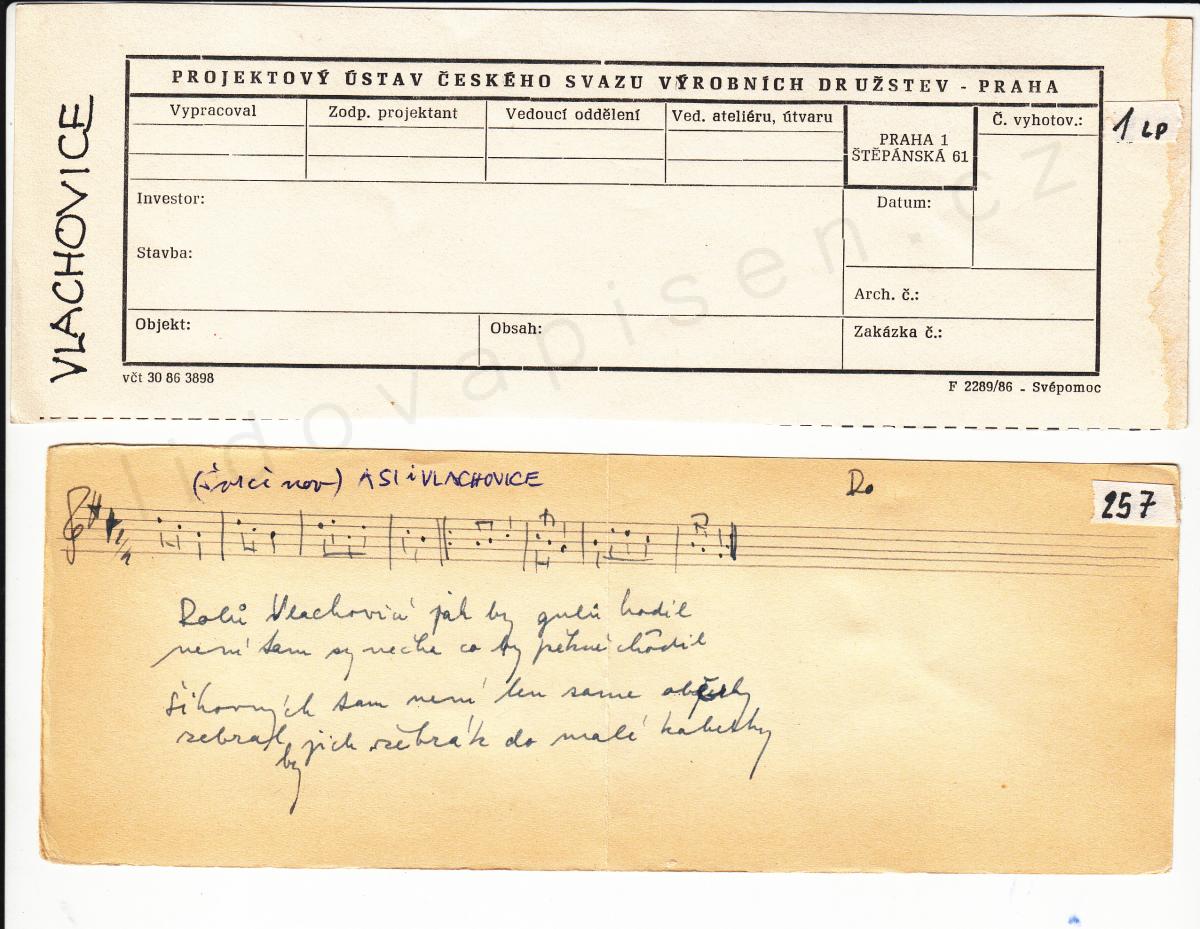 VLACHOVICE
PROJEKTOVÝ ÚSTAV ČESKÉHO SVAZU VÝROBNÍCH DRUŽSTEV - PRAHA
Vypracoval
Zodp. projektant
Vedoucí oddělení
Ved. ateliéru, útvaru
PRAHA 1
ŠTĚPÁNSKÁ 61
Č. vyhotov.:
1 LP
Investor:
Datum:
Stavba:
Arch. č.:
Objekt:
Obsah:
Zakázka č.:
včt 30 86 3898
F 2289/86 - Svépomoc
lidovapisen.cz
ASI i VLACHOVICE
257
Vlachovicú jak by gulú hodil
není tam synečka co by pěkně chodil
Šikovných tam není len same
sebral by jich žebrák do malé kabelky